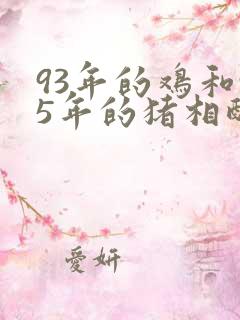 93年的鸡和
5年的猪相
愛妍